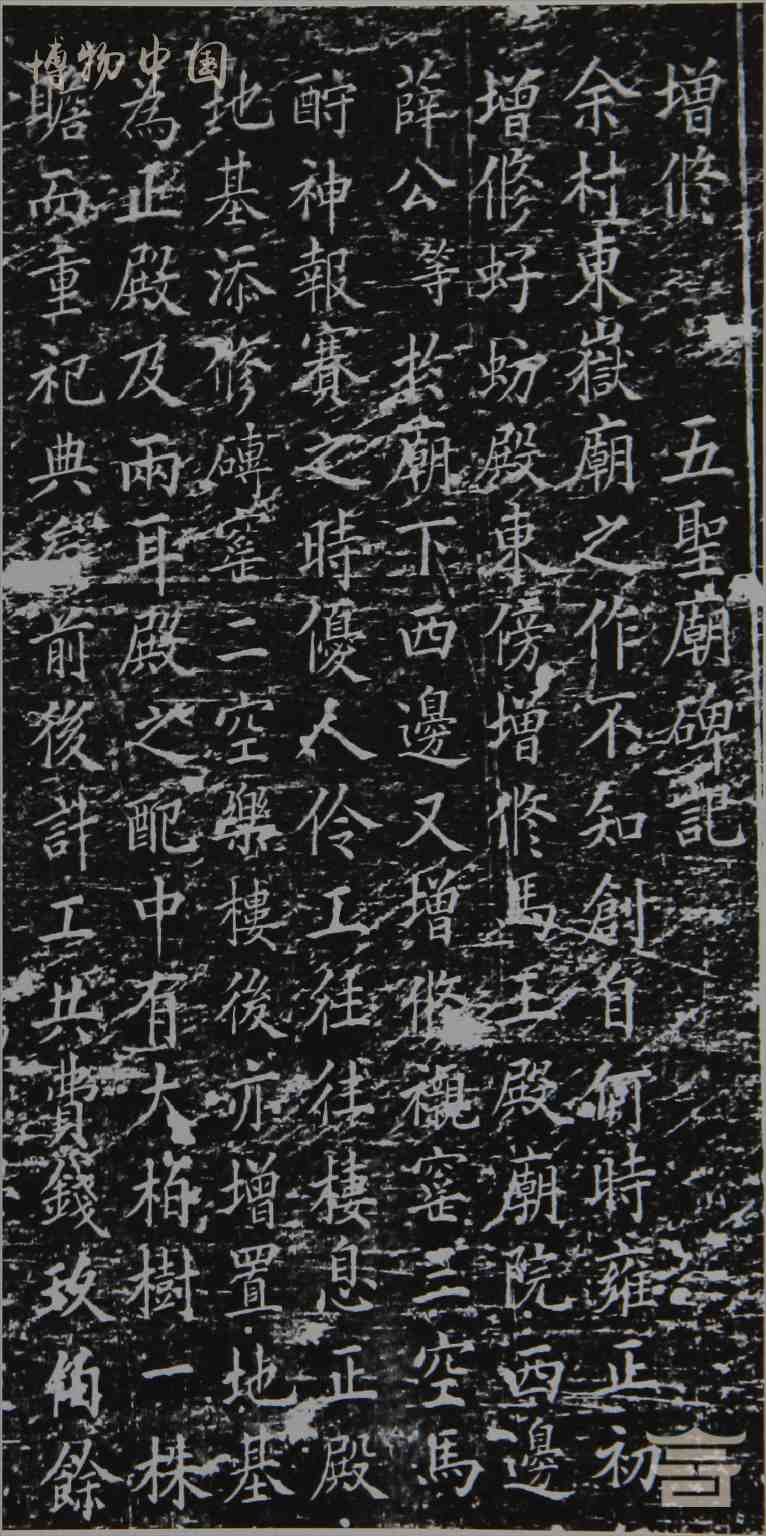 博物中国
增修 五聖廟碑記
余村東嶽廟之作不知創自何時雍正初
增修虸蚄殿東傍增修馬王殿廟院西邊
薛公等於廟下西邊又增修窑三空馬
酧神報賽之時優人伶工往往棲息正殿
地基添修磚窑二空樂樓後亦增置地基
為正殿及兩耳殿之配中有大柏樹一株
瞻而重祀典矣前後計工共費錢餘